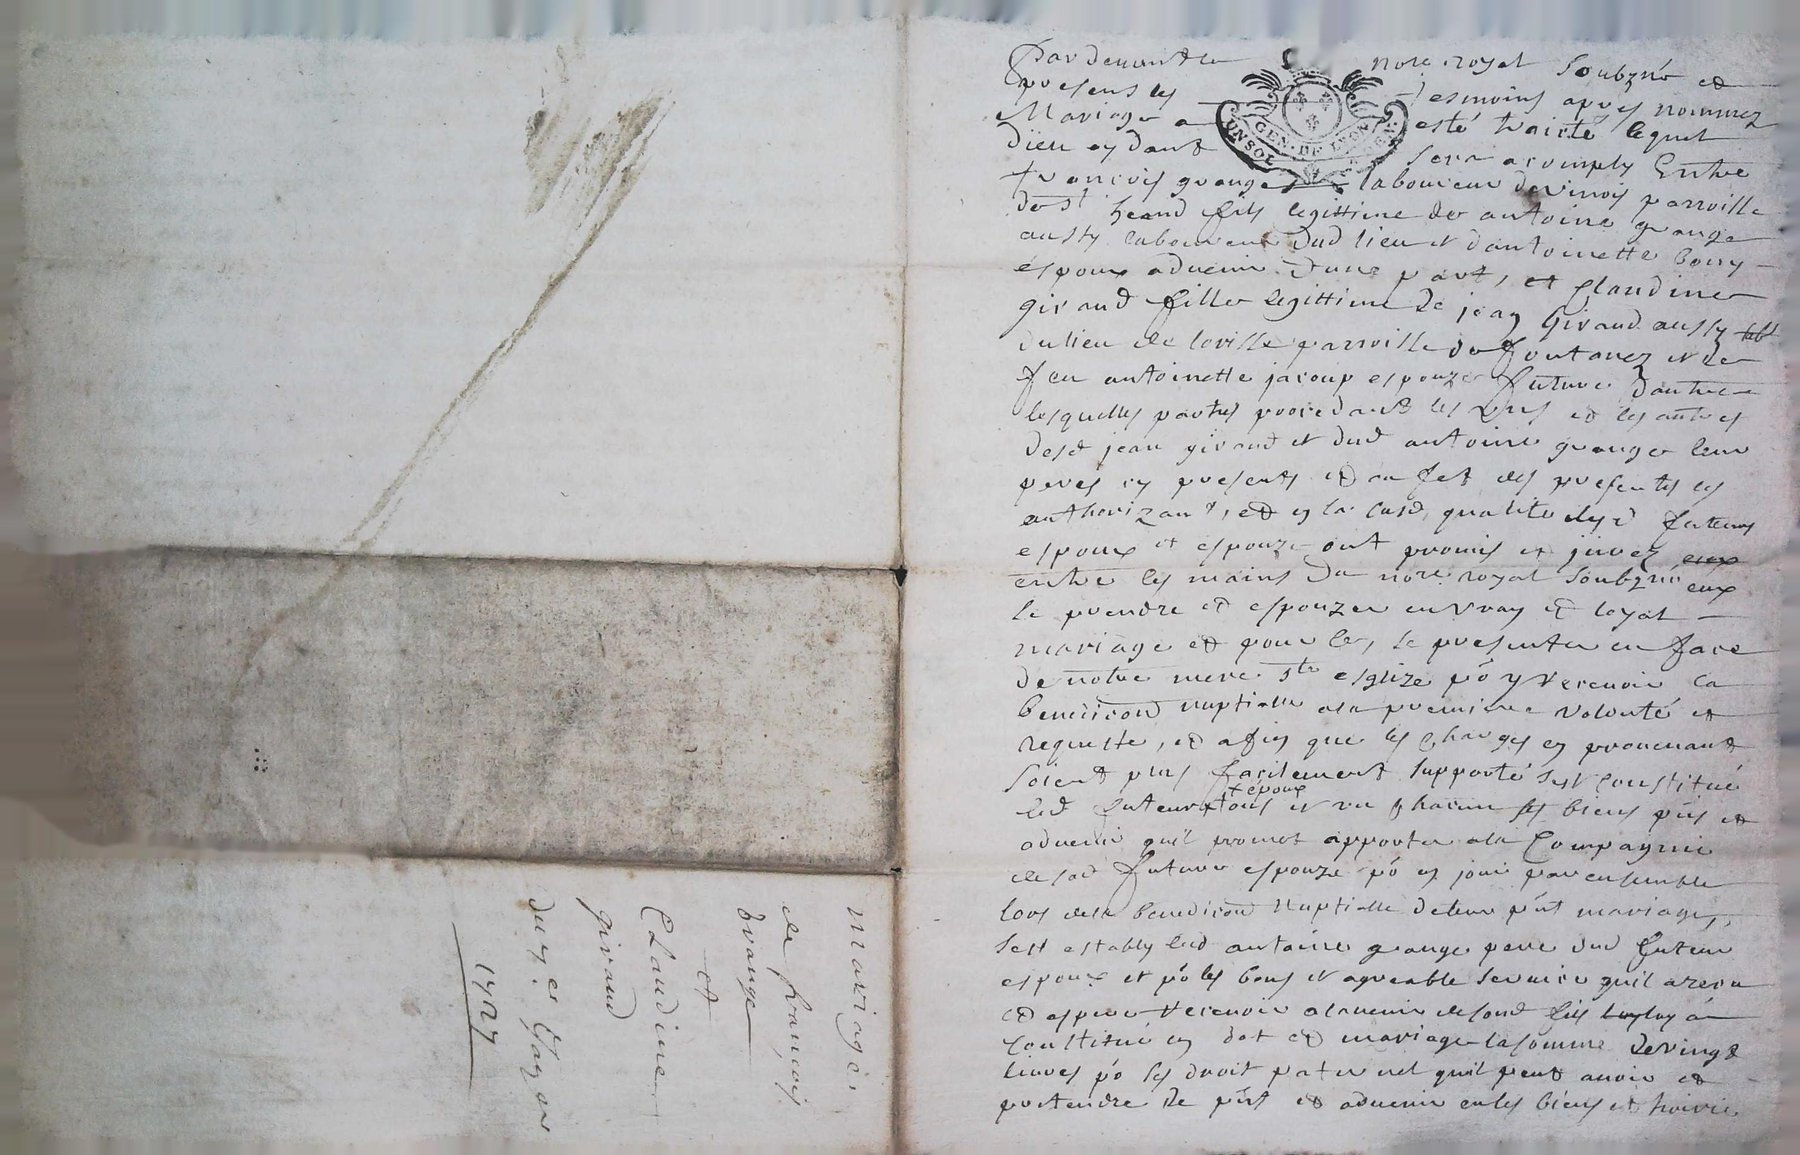 Pardevant le notre royal soubzné et
presens les tesmoins apres nommez
Mariage a esté traicté lequel
Dieu aydant sera acomply Entre
francois grange laboureur de vinois parroisse
de st heand fils legittime de antoine grange
aussy laboureur dud lieu et dantoinette bouy
espoux aduenir dune part, et Claudine
giraud fille legittime de jean Giraud aussy labr
du lieu de parroisse de fontanez et de
feu antoinette jacoup espouze future dautre
lesquelles parties procedant les uns et les autres
desd jean giraud et dud antoine grange leur
peres cy presents et au fet des presentes les
authorizant, et en la susd qualite lesd futeurs
espoux et espouze ont promis et jurez eux
entre les mains du notre royal soubzné eux
le prendre et espouzer en vray et loyal
mariage et pour ce, se presenter en face
de notre mere ste esglize po y recevoir la
benediction nuptialle a la premiere volonté et
requeste, et afin que les charges en prouenant
soient plus facilement supporté sest constitué
led futeur + tous et un chacun ses biens pñs et
+ epoux
aduenir quil promet apporter a la Compagnie
de sad future espouze po en jouir par ensemble
lors de la benediction Nuptialle de leur pñt mariage,
sest estably led antoine grange pere dud futeur
espoux et po les bons et agreable seruice quil a receu
et espere recevoir a lauenir de sond fils luy a
constitué en dot et mariage la somme de vingt
liures po ses droit paternel quil peut auoir et
pretendre de pñt et aduenir en les biens et hoirie
mariage
de francois
Grange
et
Claudine
giraud
du 7e
1727
GEN. DE LYON
UN SOL